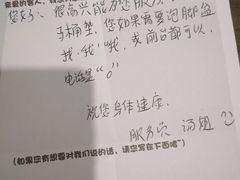 亲爱的客人,
您好: 很高兴能为您服务
马桶垫, 您如果需要泡脚盆
找“我”哦, 或前台都可以,
电话是“0”
祝您身体健康.
服务员 汤姐
(如果您有想要对我们说的话, 请您写在下面哦~)